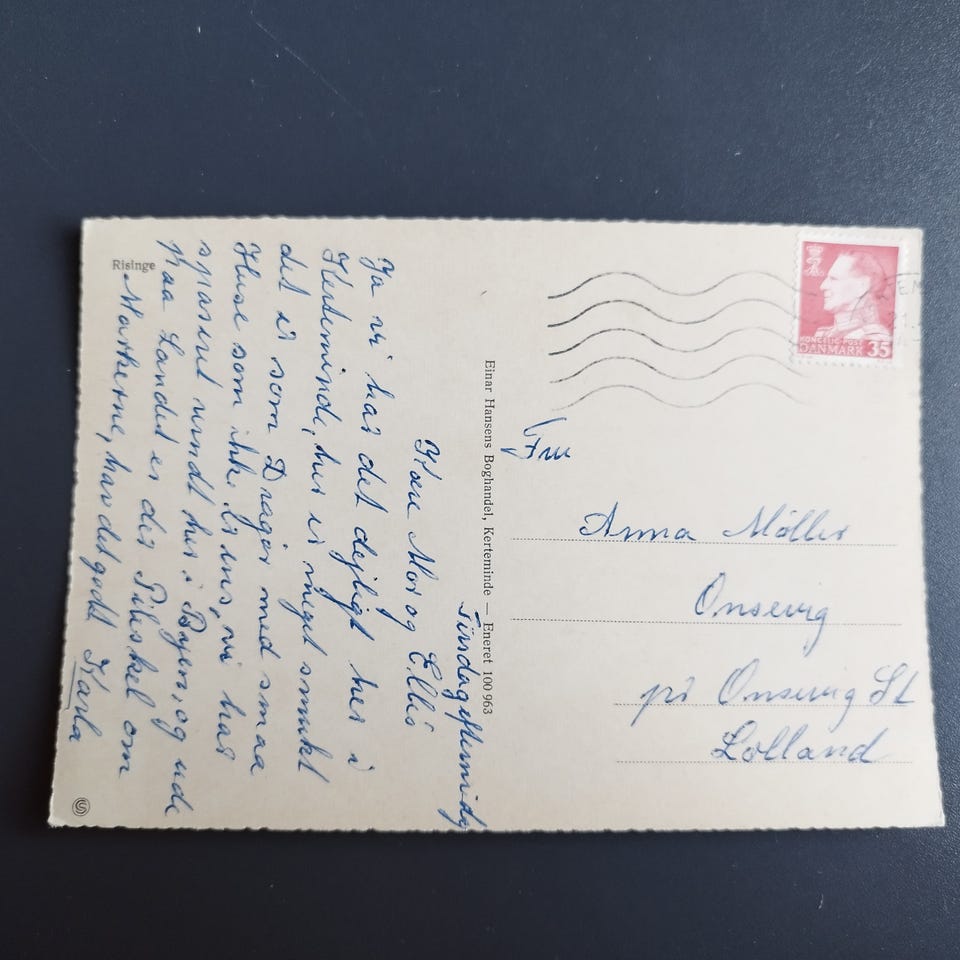 Risinge
Tirsdag eftermidg
Kære Mor og Ellis
Ja vi har det dejligt her i
Kerteminde, her er meget smukt
det er som Dragør med smaa
Huse som ikke er ens, vi har
spaseret rundt her i Byen, og ude
paa Landet er der Pileskel om
Markerne, hav det godt Karla
Einar Hansens Boghandel, Kerteminde — Eneret 100 963
KONGELIG POST
DANMARK 35
Fru
Anna Möller
Onsevig
pr Onsevig St
Lolland